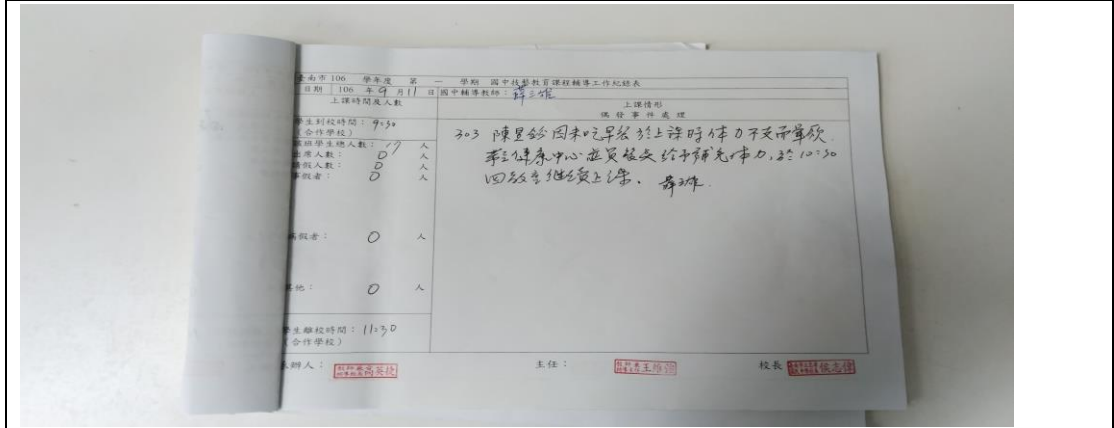 臺南市 106 學年度 第 一 學期 國中技藝教育課程輔導工作紀錄表
日期 106 年 9 月 11 日 國中輔導教師：
上課時間及人數
上課情形
偶發事件處理
學生到校時間：9:30
（合作學校）
該班學生總人數：17 人
出席人數：0 人
請假人數：0 人
事假者：0 人
病假者：0 人
其他：0 人
學生離校時間：11:30
（合作學校）
303 陳昱 因未吃早餐 於上課時体力不支而暈
至健康中心 給予補充体力，於10:30
回教室繼續上課。
承辦人：
主任：
校長